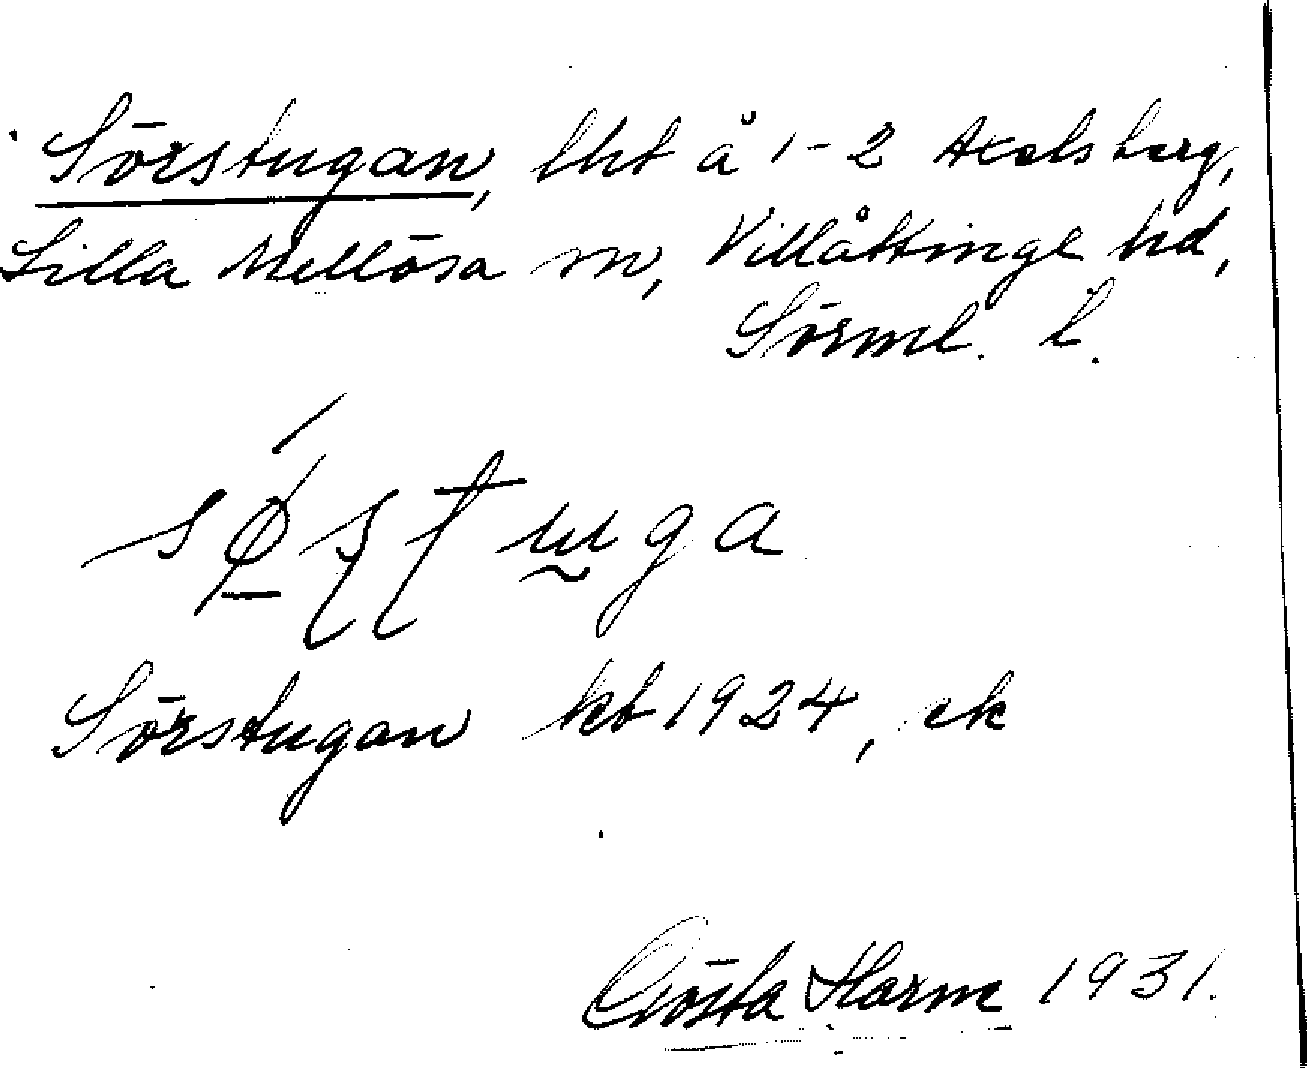 Sörstugan, lht å 1-2 Axelsberg,
Lilla Mellösa sn, Villåttinge hd,
Sörml. l.
sø̱ʂʈuga
Sörstugan kb 1924, ek
Gösta Harme 1931.